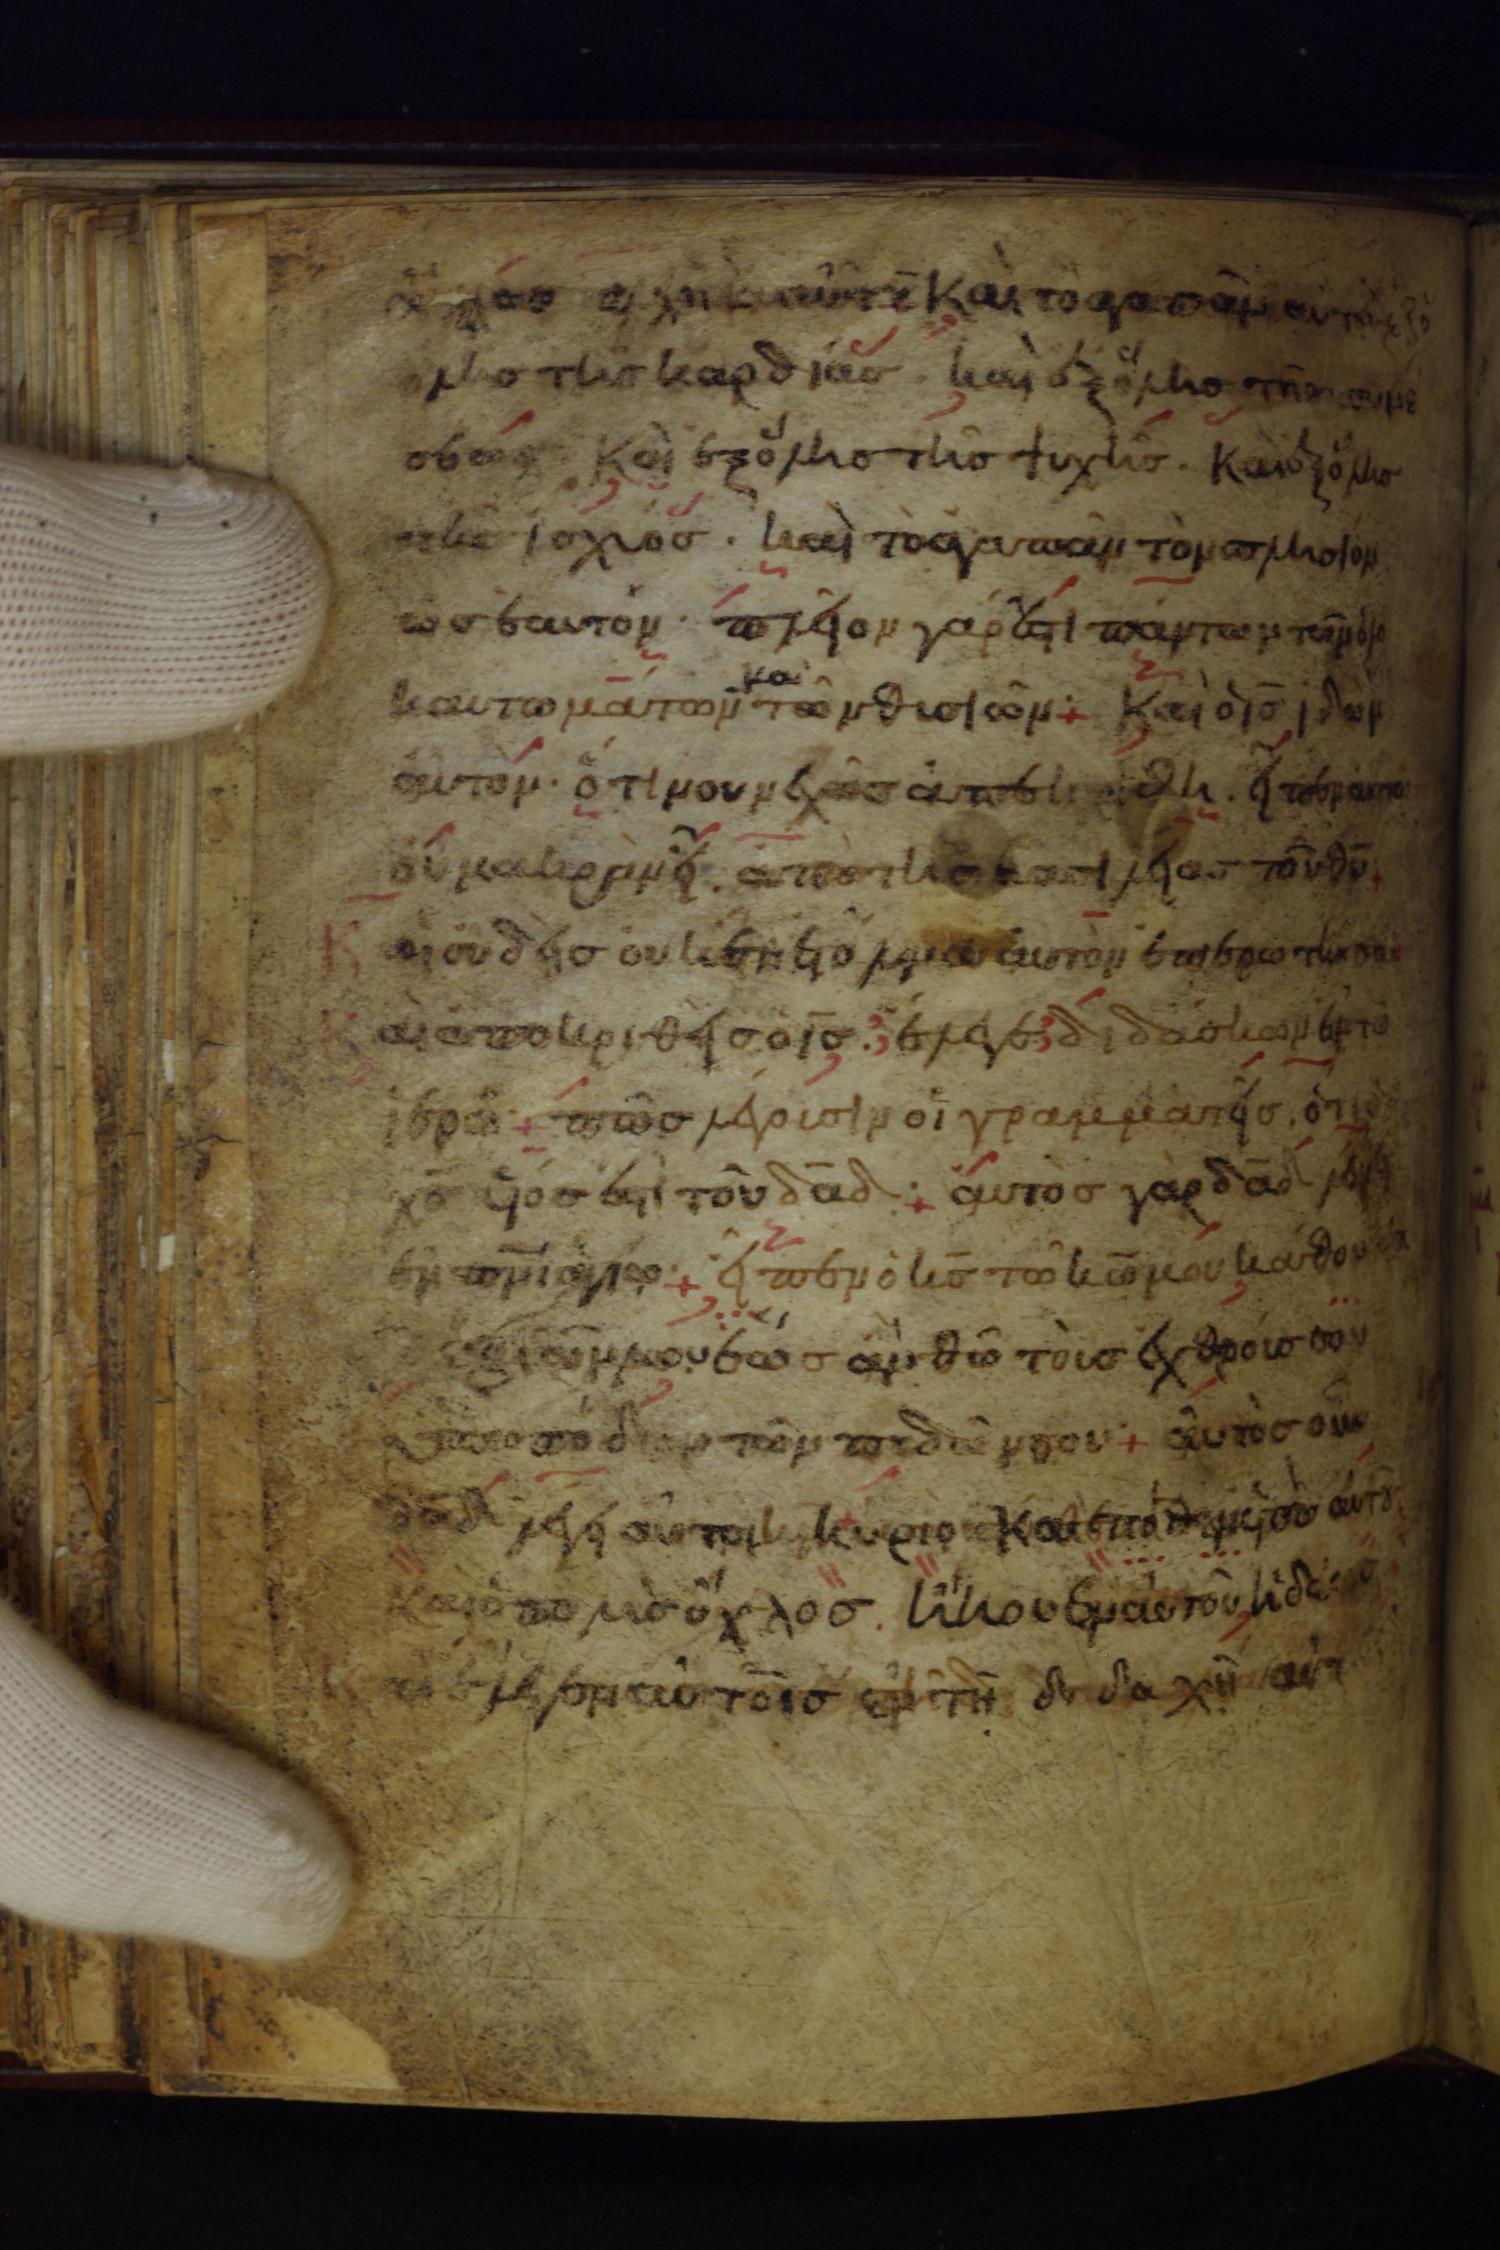 ἄλλος πλὴν αὐτοῦ Καὶ τὸ ἀγαπᾶν αὐτὸν ἐξ ὅ
λης τῆς καρδίας. καὶ ἐξ ὅλης τῆς συνέ
σεως. Καὶ ἐξ ὅλης τῆς ψυχῆς. Καὶ ἐξ ὅλης
τῆς ἰσχύος. καὶ τὸ ἀγαπᾶν τὸν πλησίον
ὡς ἑαυτόν. πλεῖον γάρ ἐστι πάντων τῶν ὁλο
καυτωμάτων καὶ τῶν θυσιῶν + Καὶ ὁ ις ἰδὼν
αὐτὸν. ὅτι νουνεχῶς ἀπεκρίθη. εἶπεν αὐτῶ
οὐ μακρὰν εἶ. ἀπὸ τῆς βασιλείας τοῦ θυ +
Κ
αι οὐδεὶς οὐκέτι ἐτόλμα αὐτὸν ἐπερωτῆσαι
Κ
αι ἀποκριθεὶς ὁ ις. ἔλεγε διδάσκων ἐν τῶ
ἱερῶ + πῶς λέγουσιν οἱ γραμματεῖς. ὅτι ὁ
χς υἱός ἐστι τοῦ δαδ + αὐτὸς γὰρ δαδ λέγει
ἐν πνι ἁγίω + εἶπεν ὁ κς τῶ κω μου κάθου ἐκ
δεξιῶν μου ἕως ἂν θῶ τοὺς ἐχθρούς σου
ὑποπόδιον τῶν ποδῶν σου + αὐτὸς οὖν
δαδ λέγει αὐτὸν κύριον Καὶ πόθεν υἱὸς αὐτοῦ
Καὶ ὁ πολὺς ὄχλος. ἤκουεν αὐτοῦ ἡδέως
Καὶ ἔλεγεν αὐτοῖς ἐν τῆ διδαχῆ αὐτ